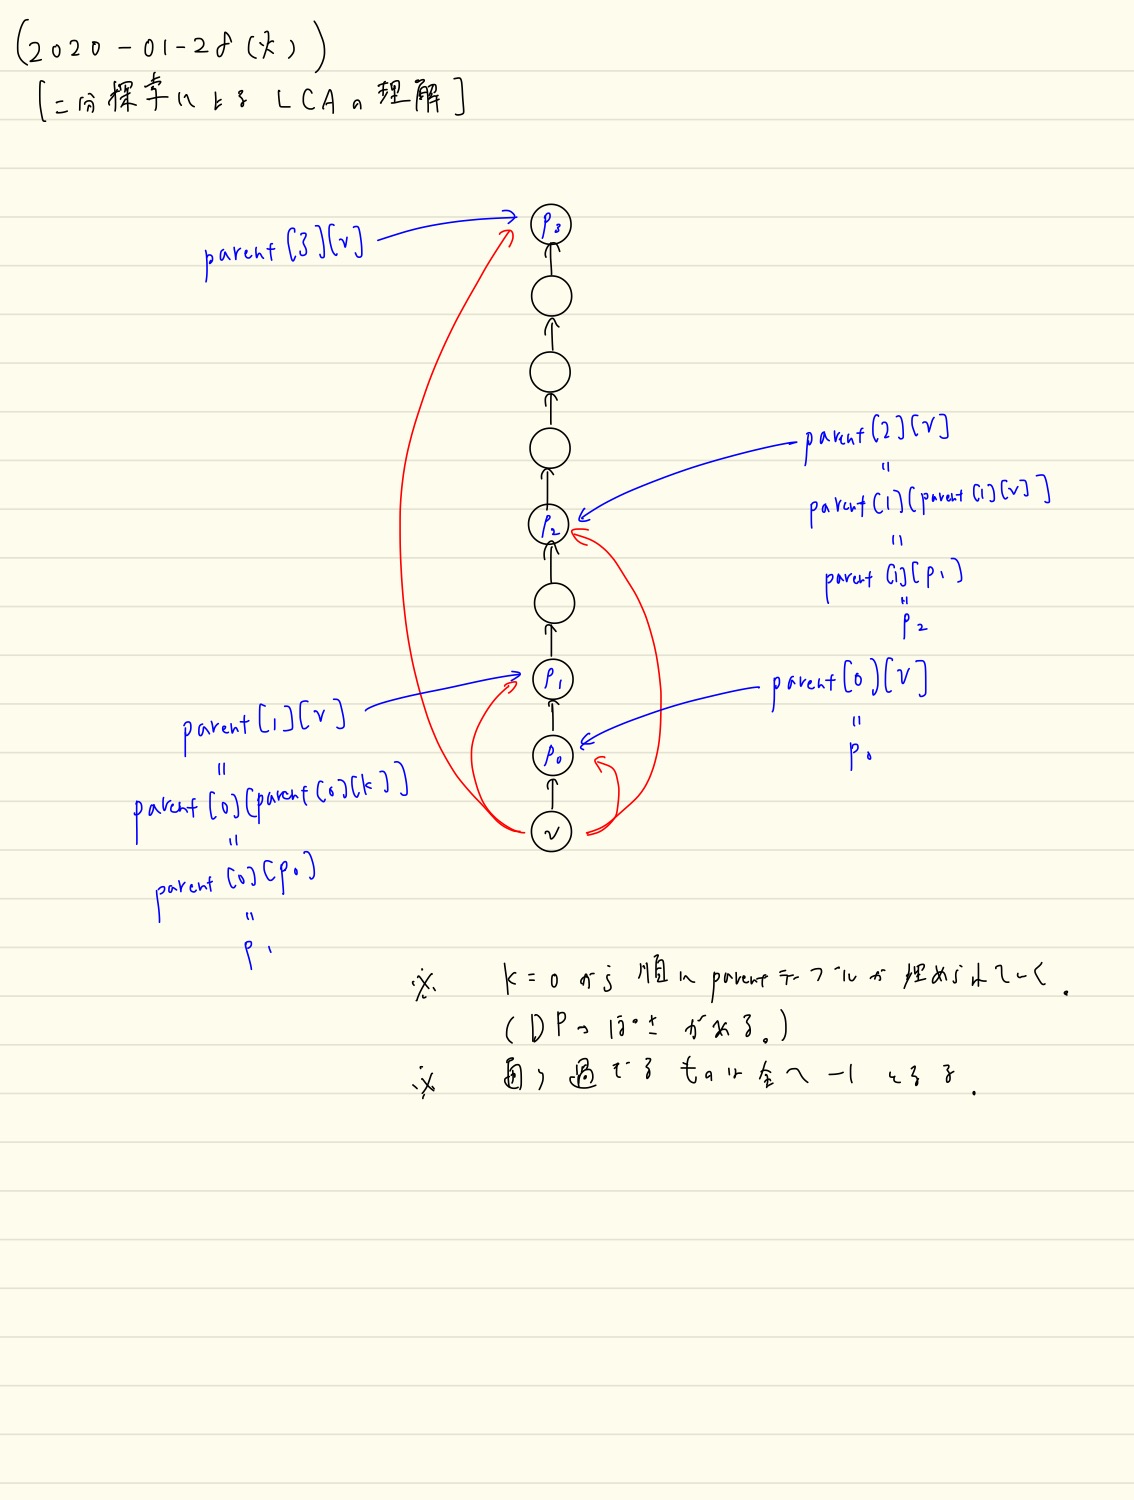 (2020-01-28(火))
[二分探索による LCAの理解]
p₃
parent[3][v]
parent[2][v]
=
parent[1][parent[1][v]]
=
parent[1][p₁]
=
p₂
p₂
p₁
parent[0][v]
=
p₀
p₀
parent[1][v]
=
parent[0][parent[0][k]]
=
parent[0][p₀]
=
p₁
v
※ k=0から順にparentテーブルが埋められていく.
(DPっぽさがある。)
※ 通り過ぎるものは全て -1 とする.